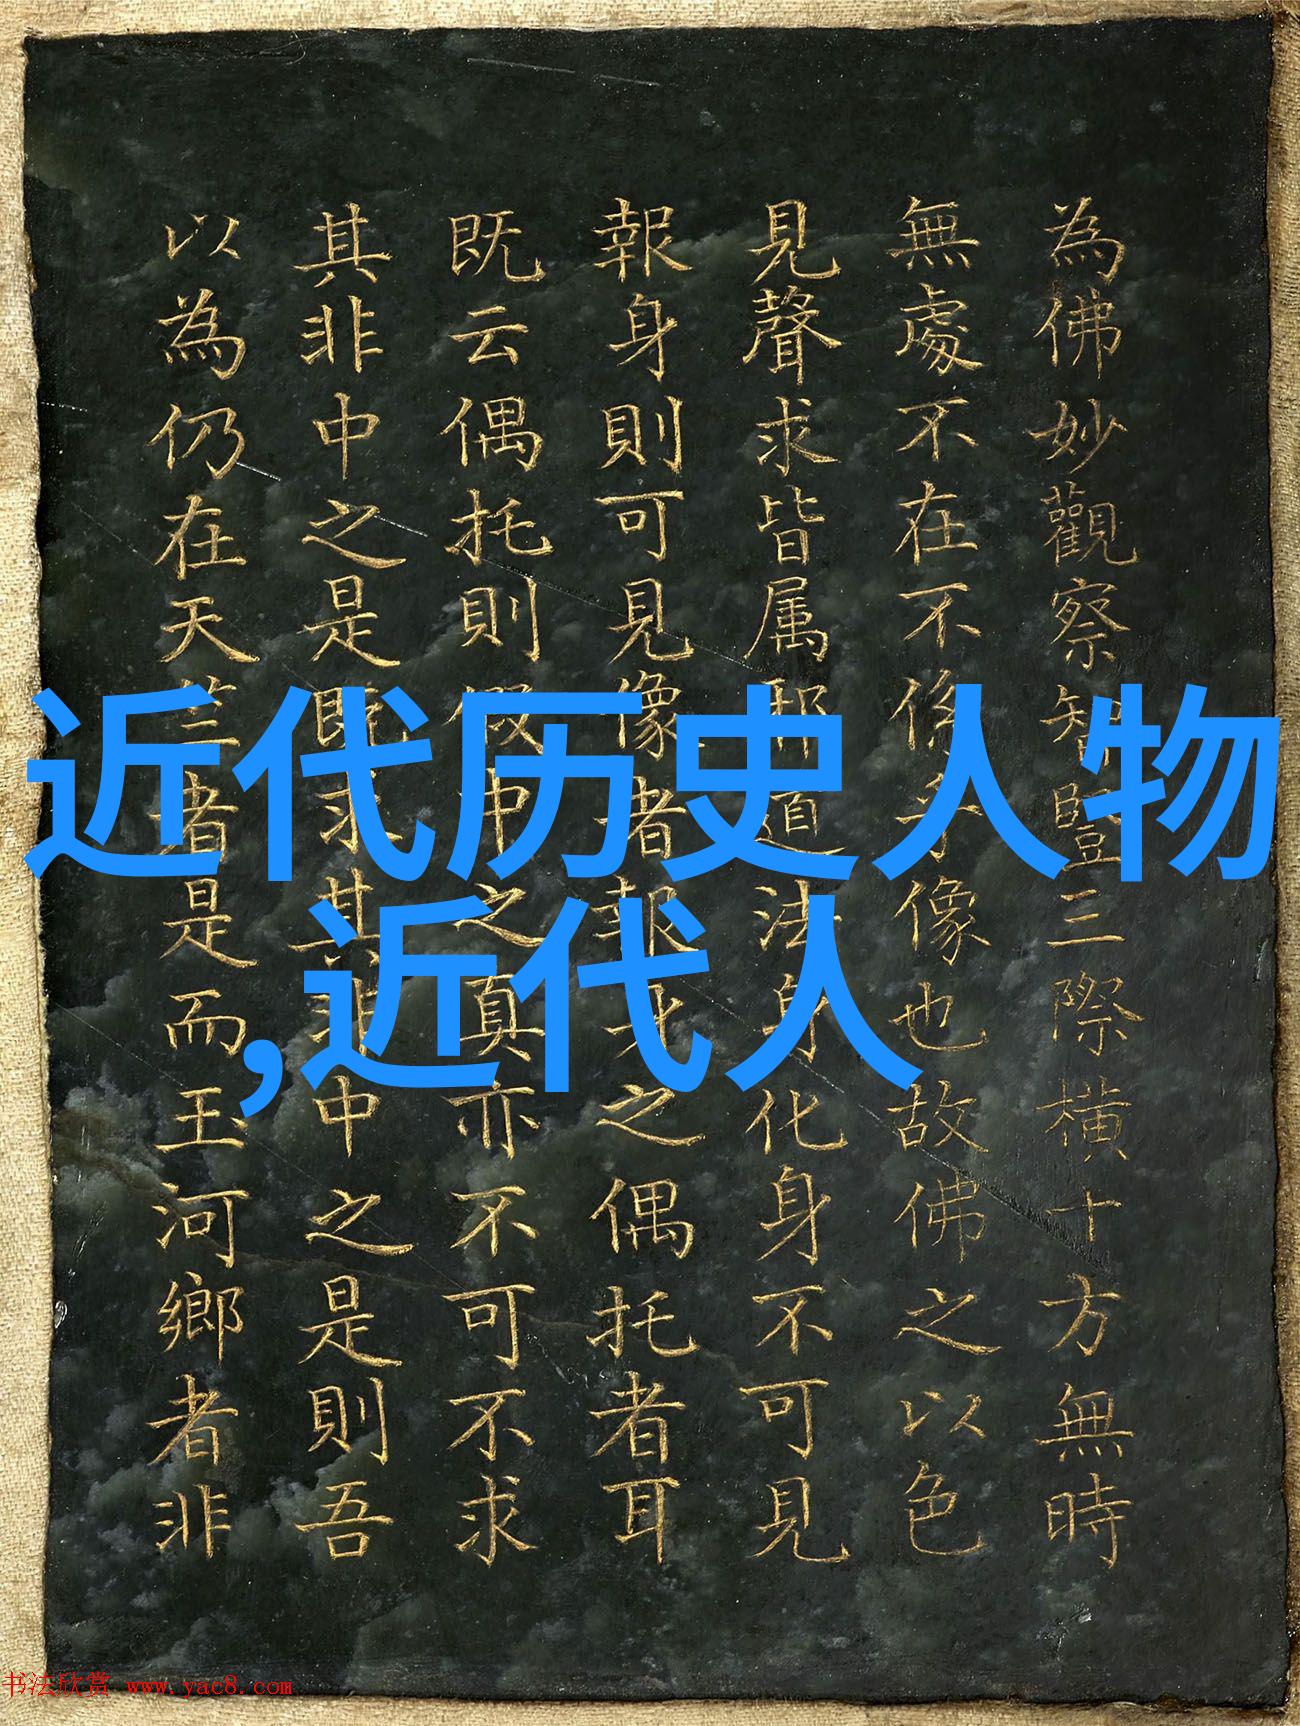 為佛妙觀察智豎三際橫十方無時
無處不在不係乎像也故佛之以色
見聲求皆属邪道法身化身不可見
報身則可見像者報身之偶托者耳
既云偶托則假中之真亦不可不求
其非中之是既求其非中之是則吾
以為仍在天竺者是而玉河鄉者非
近代历史人物
,近代人
书法欣赏 www.yac8.com